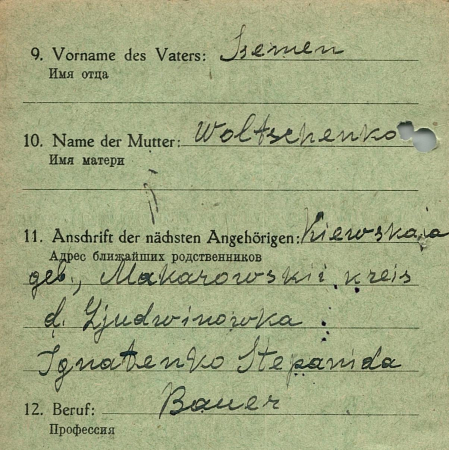 9. Vorname des Vaters: Semen
Имя отца
10. Name der Mutter: Woltschenko
Имя матери
11. Anschrift der nächsten Angehörigen: Kiewskaja
Адрес ближайших родственников
geb., Makarowskii kreis
d. Ljudwinowka.
Ignatenko Stepanida
12. Beruf: Bauer
Профессия